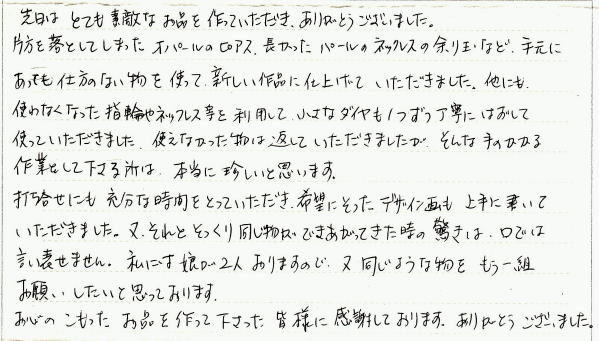 先日は とても 素敵な お品を 作っていただき、ありがとうございました。
片方を落としてしまった オパールのピアス、長かった パールのネックレスの余り玉など、手元に
あっても仕方のない物を使って、新しい作品に仕上げて いただきました。他にも、
使わなくなった 指輪やネックレス等を利用して、小さなダイヤも1つずつ丁寧にはずして
使っていただきました。使えなかった物は返して いただきましたが、そんな手のかかる
作業をして下さる所は、本当に珍しいと思います。
打ち合せにも 充分な時間をとっていただき、希望にそった デザイン画も 上手に書いて
いただきました。又、それと そっくり同じ物が できあがってきた時の 驚きは、口では
言い表せません。私には 娘が2人 おりますので、又 同じような物を もう一組
お願いしたいと思っております。
お心の こもった お品を 作って下さった 皆様に 感謝しております。ありがとう ございました。